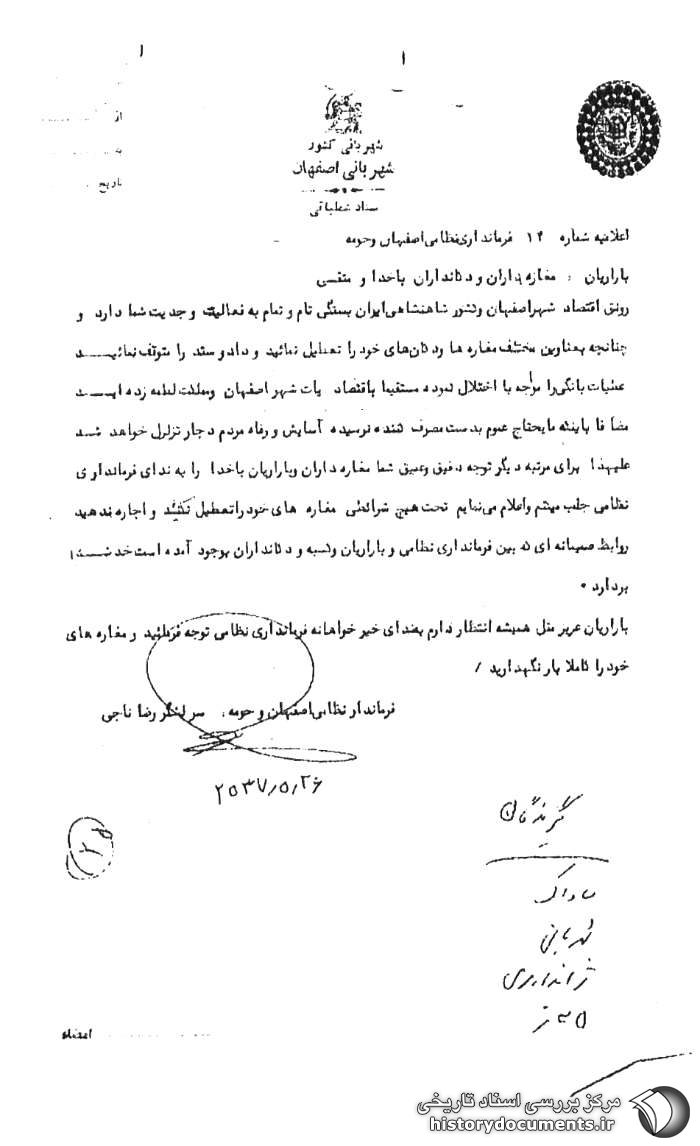 از
به
تاریخ
شهربانی کشور
شهربانی اصفهان
ستاد عملیاتی
اعلامیه شماره ۱۴ فرمانداری نظامی اصفهان وحومه
بازاریان ، مغازه داران و دکانداران باخدا و متقی
رونق اقتصاد شهر اصفهان وکشور شاهنشاهی ایران بستگی تام و تمام به فعالیت و جدیت شما دارد و
چنانچه بعناوین مختلف مغازه ها ودکان‌های خود را تعطیل نمائید و داد و ستد را متوقف نمائید
عملیات بانکی را مواجه با اختلال نموده مستقیما باقتصاد شهر اصفهان ومملکت لطمه زده اید
مضافا باینکه مایحتاج عموم بدست مصرف کننده نرسیده آسایش و رفاه مردم دچار تزلزل خواهد شد
علیهذا برای مرتبه دیگر توجه دقیق وعمیق شما مغازه داران وبازاریان باخدا را به ندای فرمانداری
نظامی جلب میکنم واعلام می‌نمایم تحت هیچ شرائطی مغازه های خود را تعطیل نکنید و اجازه ندهید
روابط صمیمانه ای که بین فرمانداری نظامی و بازاریان وکسبه و دکانداران بوجود آمده است خدشه
بردارد .
بازاریان عزیز مثل همیشه انتظار دارم بندای خیر خواهانه فرمانداری نظامی توجه فرمائید و مغازه های
خود را کاملا باز نگهدارید /
فرماندار نظامی اصفهان و حومه . سرلشگر رضا ناجی
۲۵۳۷٫۵٫۲۶
گیرندگان
ساواک
شهربانی
ژاندارمری
امضاء
مرکز بررسی اسناد تاریخی
historydocuments.ir